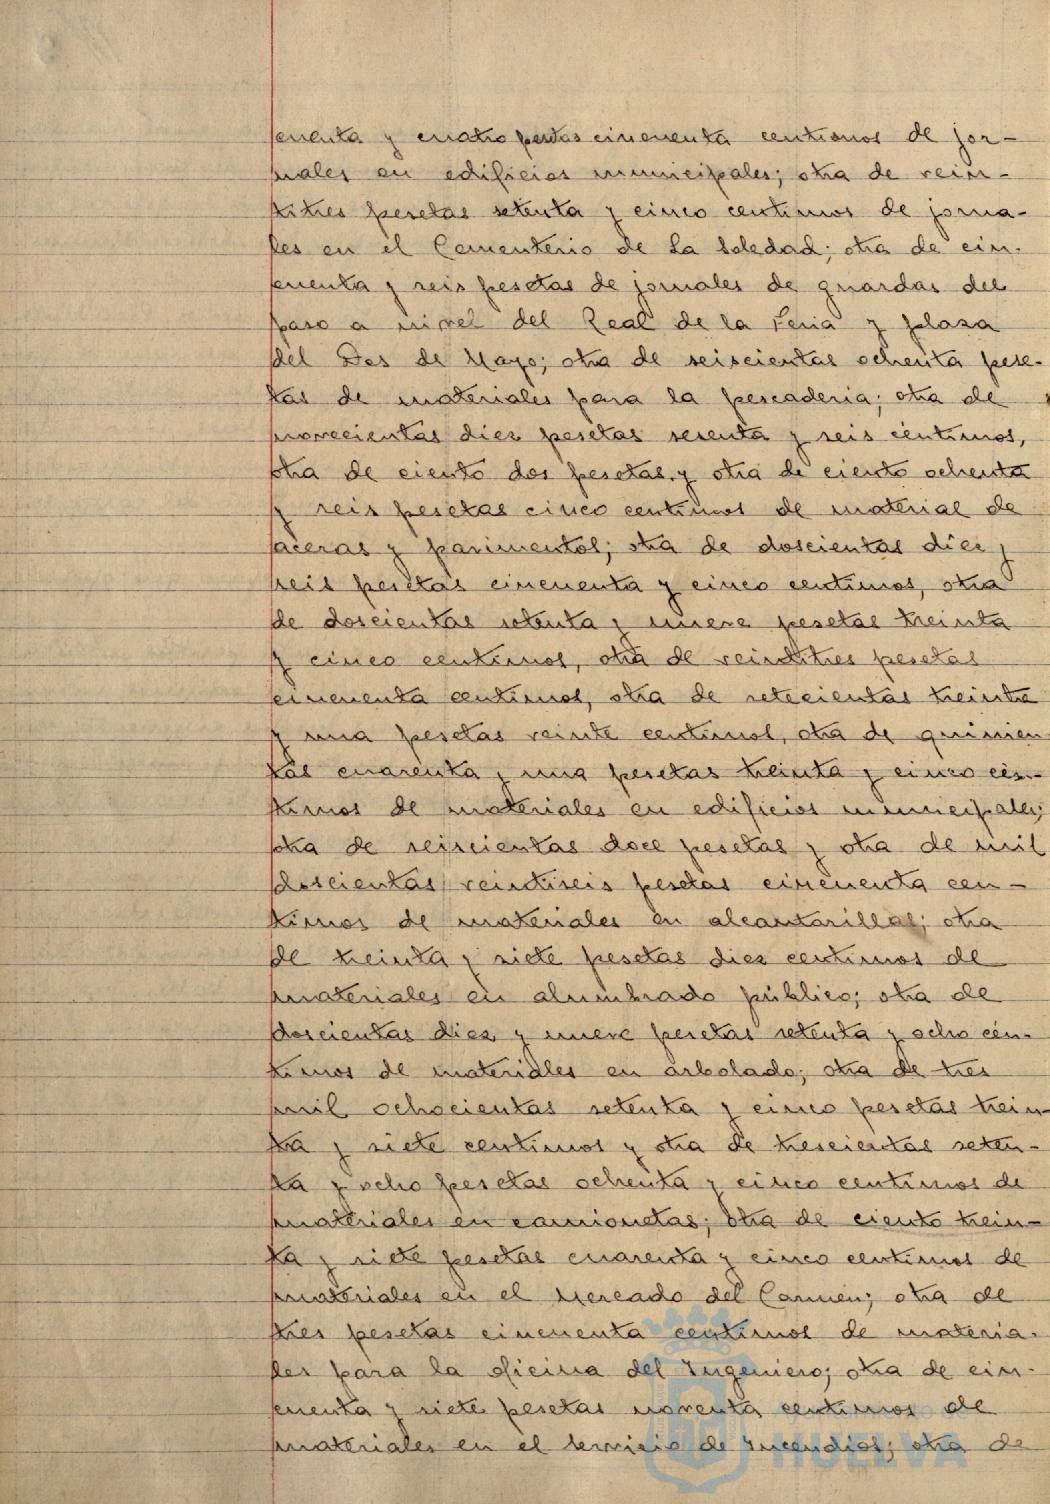 cuenta y cuatro pesetas cincuenta centimos de jor-
nales en edificios municipales; otra de vein-
titres pesetas setenta y cinco centimos de jorna-
les en el Cementerio de La Soledad; otra de cin-
cuenta y seis pesetas de jornales de guardas del
paso a nivel del Real de la Feria y plaza
del Dos de Mayo; otra de seiscientas ochenta pese-
tas de materiales para la pescaderia; otra de
novecientas diez pesetas sesenta y seis céntimos,
otra de ciento dos pesetas y otra de ciento ochenta
y seis pesetas cinco centimos de material de
aceras y pavimentos; otra de doscientas diez y
seis pesetas cincuenta y cinco centimos, otra
de doscientas setenta y nueve pesetas treinta
y cinco centimos, otra de veintitres pesetas
cincuenta centimos, otra de setecientas treinta
y una pesetas veinte centimos, otra de quinien
tas cuarenta y una pesetas treinta y cinco cén-
timos de materiales en edificios municipales;
otra de seiscientas doce pesetas y otra de mil
doscientas veintiseis pesetas cincuenta cen-
timos de materiales en alcantarillas; otra
de treinta y siete pesetas diez centimos de
materiales en alumbrado público; otra de
doscientas diez y nueve pesetas setenta y ocho cén-
timos de materiales en arbolado; otra de tres
mil ochocientas setenta y cinco pesetas trein-
ta y siete centimos y otra de trescientas seten-
ta y ocho pesetas ochenta y cinco centimos de
materiales en camionetas; otra de ciento trein-
ta y siete pesetas cuarenta y cinco centimos de
materiales en el Mercado del Carmen; otra de
tres pesetas cincuenta centimos de materia-
les para la oficina del Ingeniero; otra de cin-
cuenta y siete pesetas noventa centimos de
materiales en el servicio de Incendios; otra de
HUELVA